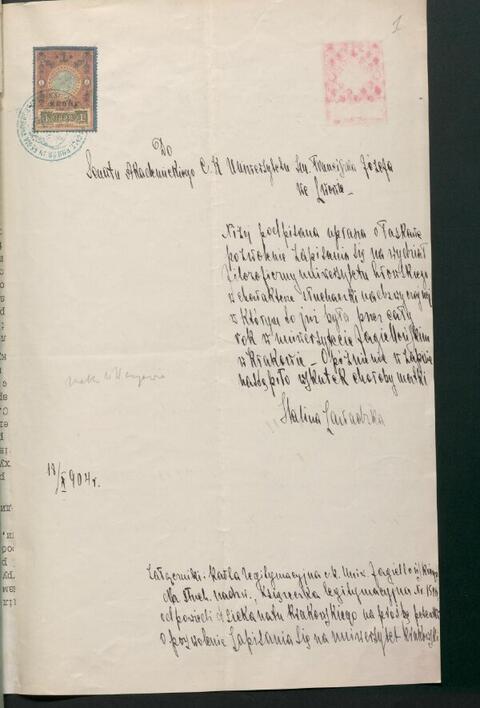 1
1
KRONE
Do
Senatu Akademickiego C. K. Uniwersytetu im. Franciszka Józefa
we Lwowie
Niżej podpisana uprasza o łaskawe
pozwolenie zapisania się na wydział
filozoficzny uniwersytetu lwowskiego
w charakterze słuchaczki nadzwyczajnej
w którym to już była przez cały
rok w uniwersytecie Jagiellońskim
w Krakowie – Opóźnienie w zapisie
nastąpiło wskutek choroby matki
Halina
18/X 904 r.
Załączniki: karta legitymacyjna c.k. Uniw. Jagiellońskiego
dla słuch. nadzw., książeczka legitymacyjna Nr
odpowiedź dziekanatu krakowskiego na prośbę
o pozwolenie zapisania się na uniwersytet krakowski